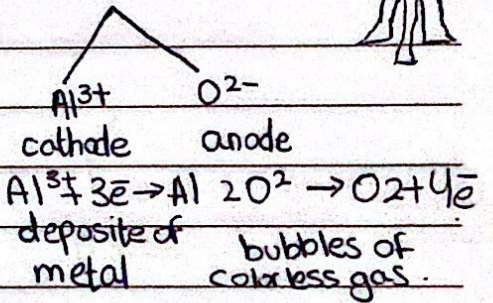 Al³⁺ O²⁻
cathode anode
Al³⁺+ 3ē → Al 2O² → O2 + 4ē
deposite of
metal
bubbles of
colorless gas.